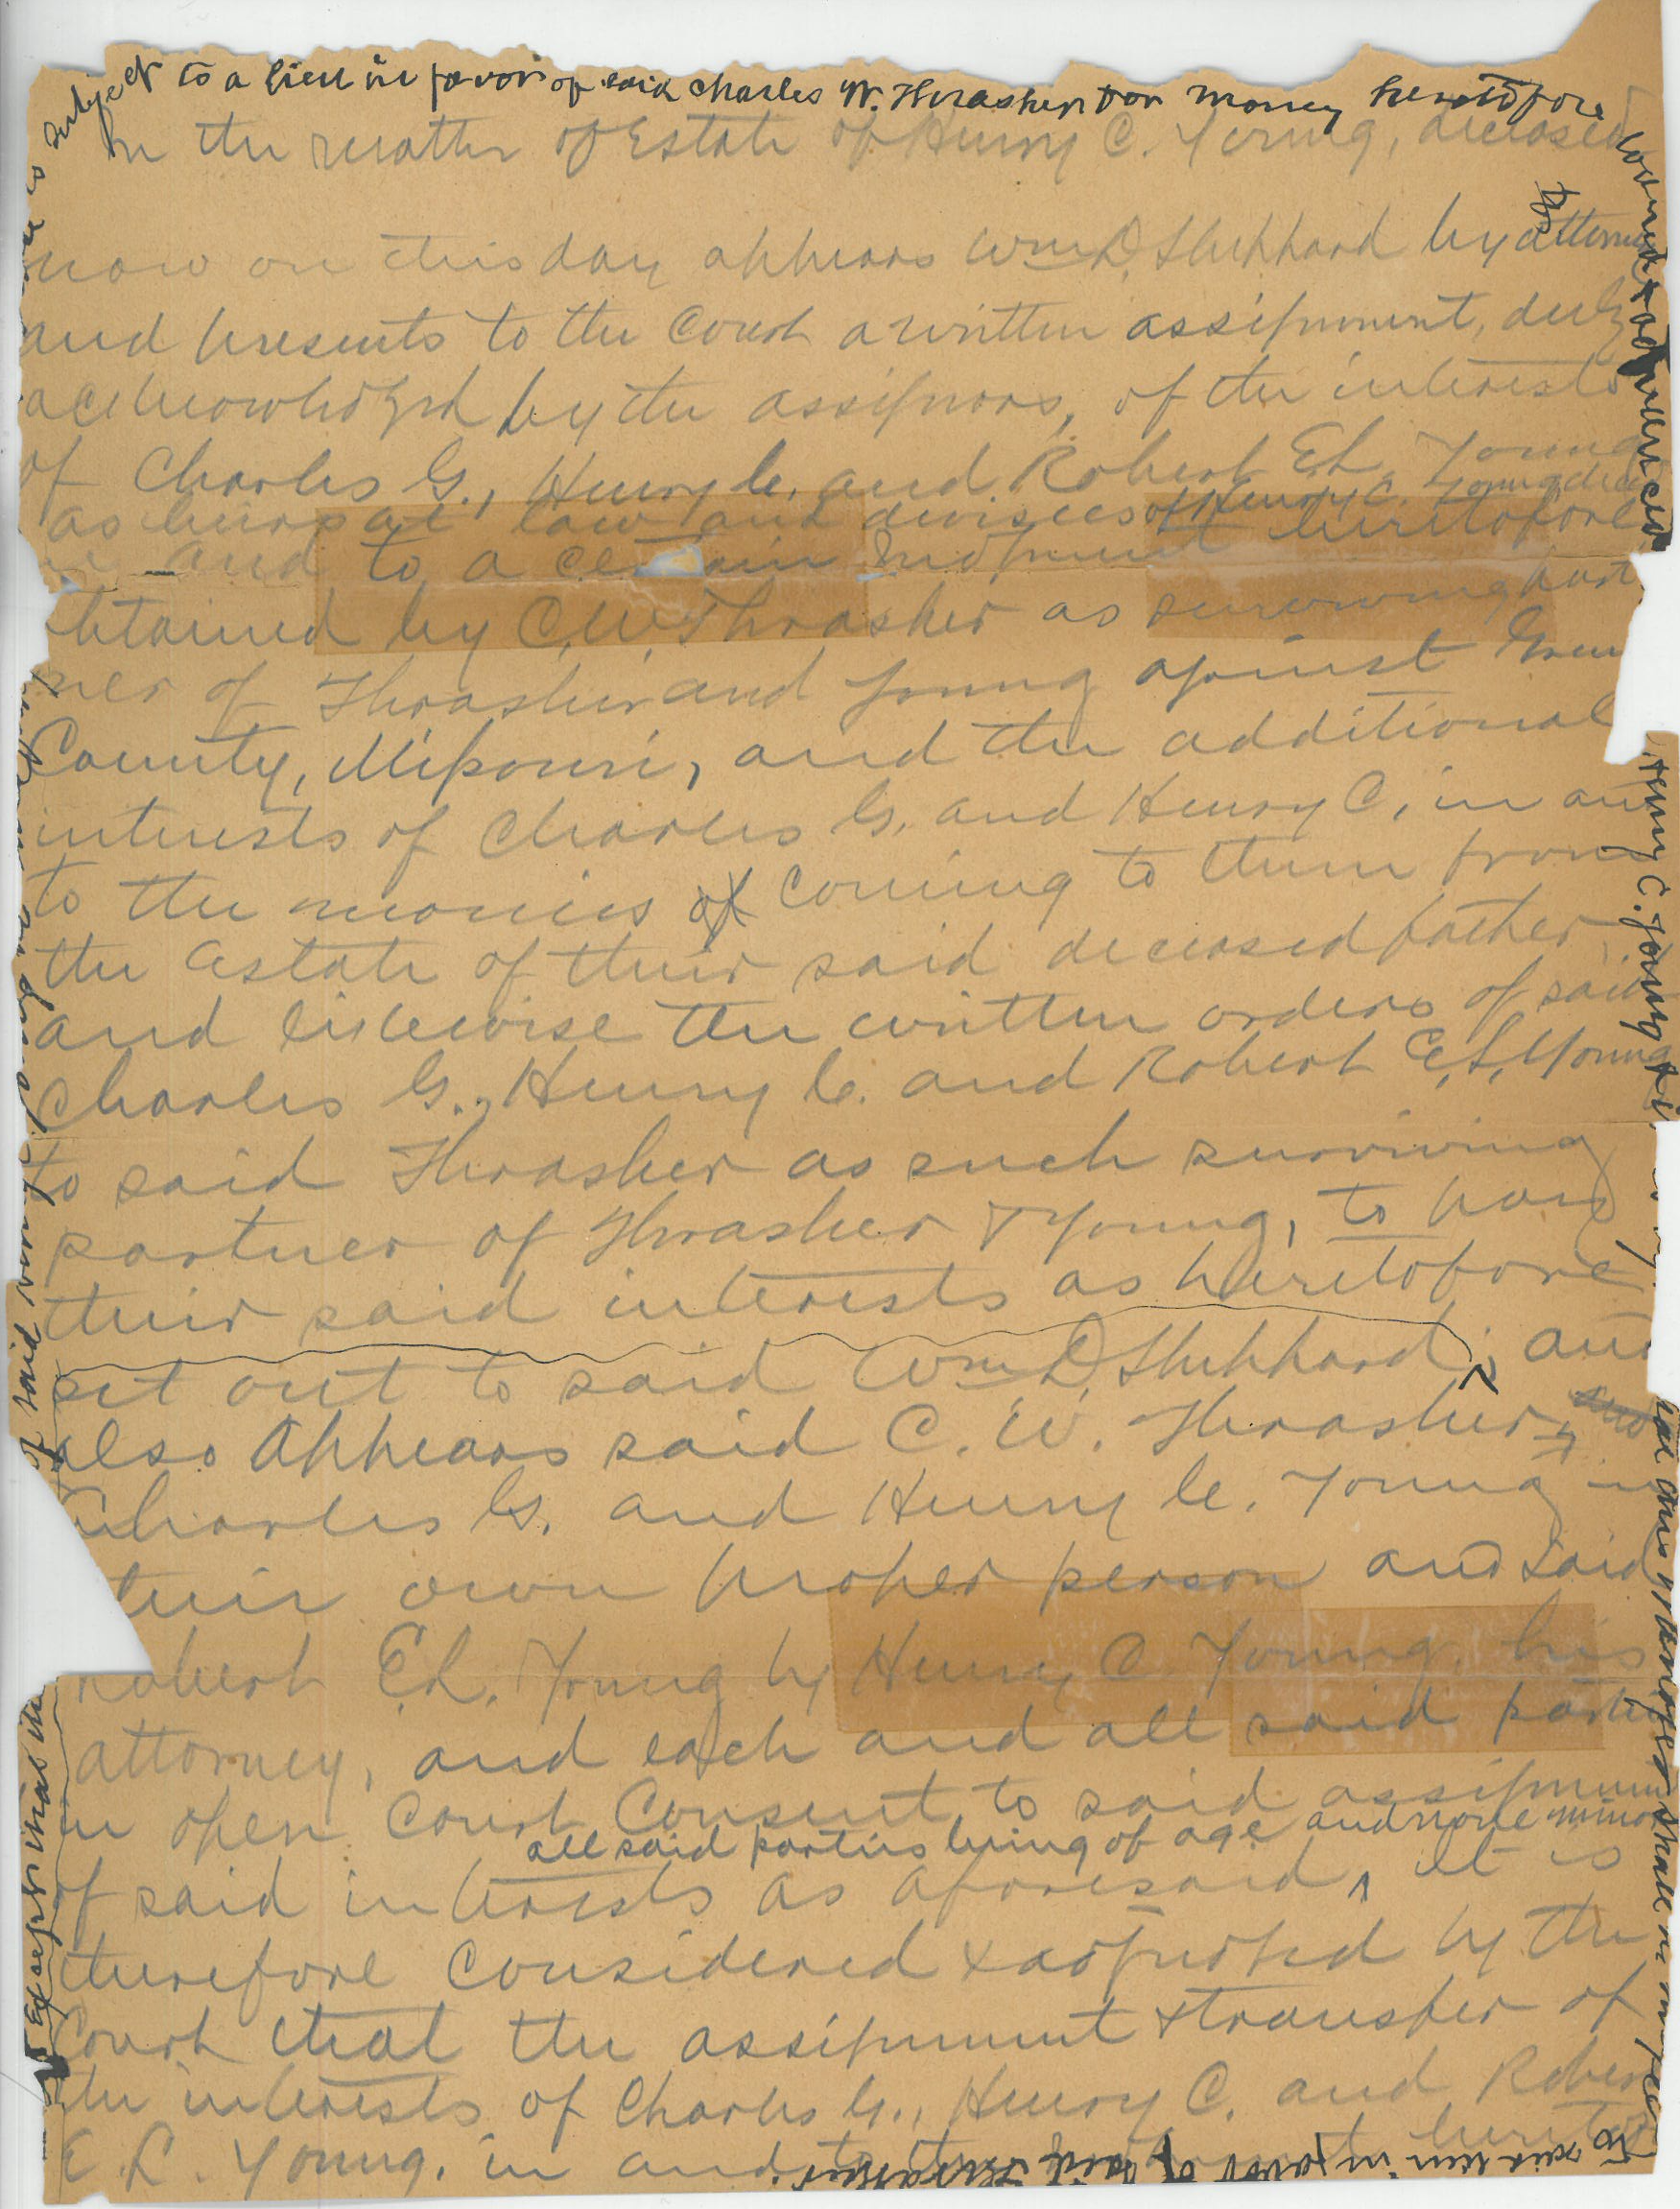 subject to a lien in favor of said Charles W. Thrasher for money heretofore
loaned & advanced
In the matter of Estate of Henry C. Young, deceased
now on this day appears Wm D. Sheppard by attorney
and presents to the Court a written assignment, duly
acknowledged by the assignors, of the interests
of Charles G., Henry C. and Robert E L Young
as heirs at law and devisees of Henry C. Young decd
in and to a certain judgment heretofore
obtained by C. W. Thrasher as surviving part
ner of Thrasher and Young against Green
County, Missouri, and the additional
interests of Charles G. and Henry C, in and
to the monies of coming to them from
the estate of their said deceased father,
and likewise the written orders of said
Charles G., Henry C. and Robert E. L. Young
to said Thrasher as such surviving
partner of Thrasher & Young, to pay
their said interests as heretofore
set out to said Wm D. Sheppard, and
also appears said C. W. Thrasher,
Charles G. and Henry C. Young in
their own proper person and said
Robert E L. Young by Henry C. Young, his
attorney, and each and all said parties
in open Court Consent to said assignment
all said parties being of age and none minors
of said interests as aforesaid, It is
therefore Considered & adjudged by the
Court that the assignment & transfer of
the interests of Charles G., Henry C. and Robert
E. L. Young, in and to
Henry C. Young
shall in
to said lien in favor of said Thrasher.
Except that the
of said